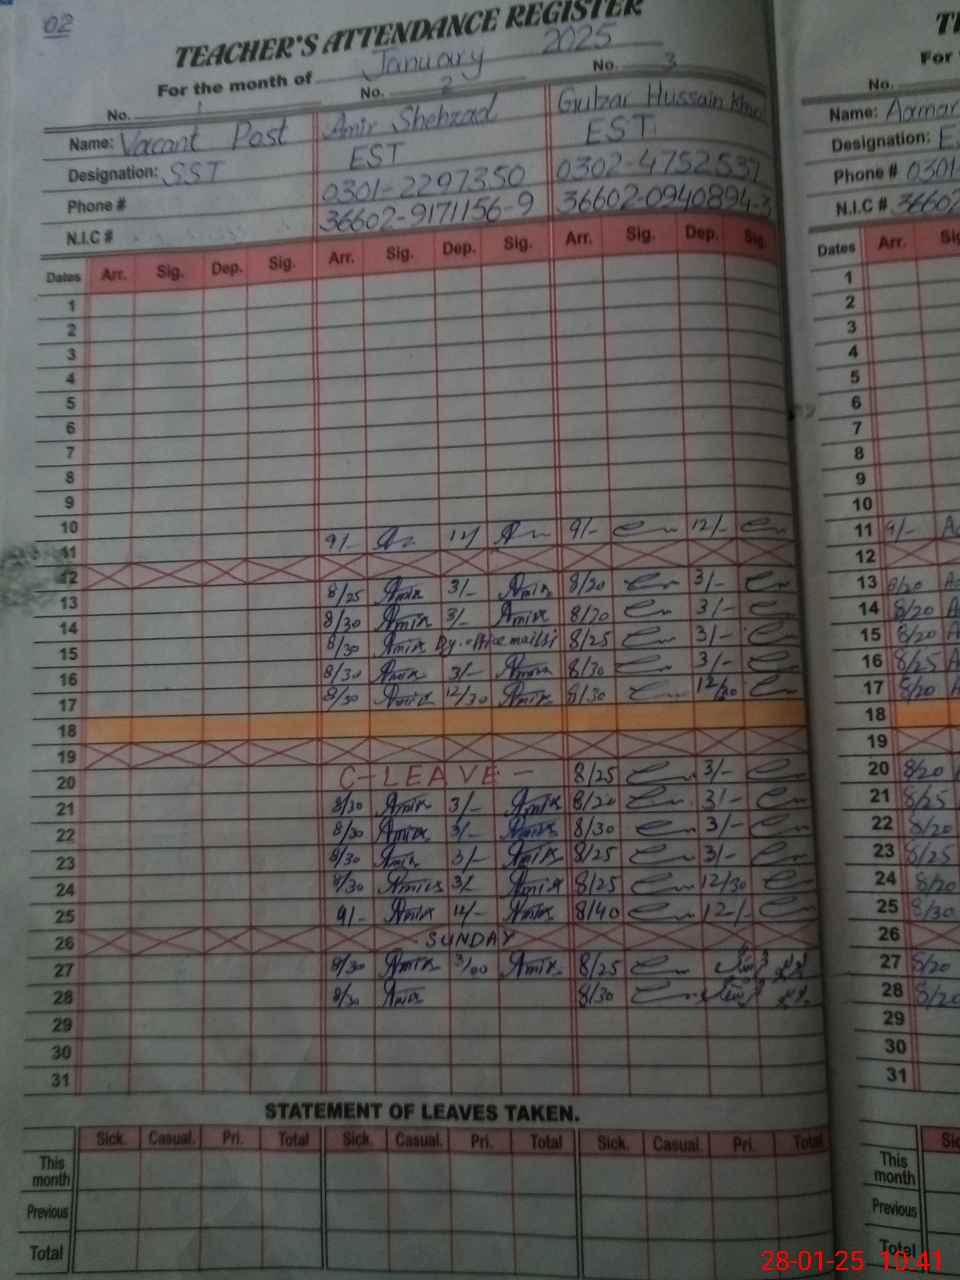 02
TEACHER'S ATTENDANCE REGISTER
For the month of January 2025
No. 1 No. 2 No. 3
Name: Vacant Post Amir Shehzad Gulzar Hussain
Designation: SST EST EST
Phone # 0301-2297350 0302-4752537
N.I.C # 36602-9171156-9 36602-0940894-3
Dates Arr. Sig. Dep. Sig. Arr. Sig. Dep. Sig. Arr. Sig. Dep. Sig.
1
2
3
4
5
6
7
8
9
10
11 9/- 12/- 9/- 12/-
12
13 8/25 Amir 3/- Amir 8/20 3/-
14 8/30 Amir 3/- Amir 8/20 3/-
15 8/30 Amir Dy. office 8/25 3/-
16 8/30 Amir 3/- Amir 8/30 3/-
17 8/30 Amir 12/30 Amir 8/30 12/30
18
19
20 C-LEAVE- 8/25 3/-
21 8/30 Amir 3/- Amir 8/20 3/-
22 8/30 Amir 3/- Amir 8/30 3/-
23 8/30 Amir 3/- Amir 8/25 3/-
24 8/30 Amir 3/- Amir 8/25 12/30
25 9/- Amir 12/- Amir 8/40 12/-
26 SUNDAY
27 8/30 Amir 3/00 Amir 8/25
28 8/30 Amir 8/30
29
30
31
STATEMENT OF LEAVES TAKEN.
Sick. Casual. Pri. Total Sick. Casual. Pri. Total Sick. Casual. Pri. Total
This month
Previous
Total
For
No.
Name: Aamar
Designation: E
Phone # 0301-
N.I.C # 36602
Dates Arr.
1
2
3
4
5
6
7
8
9
10
11 9/-
12
13 8/20
14 8/20
15 8/20
16 8/25
17 8/20
18
19
20 8/20
21 8/25
22 8/20
23 8/25
24 8/20
25 8/30
26
27 8/20
28 8/20
29
30
31
This month
Previous
Total
28-01-25 10:41